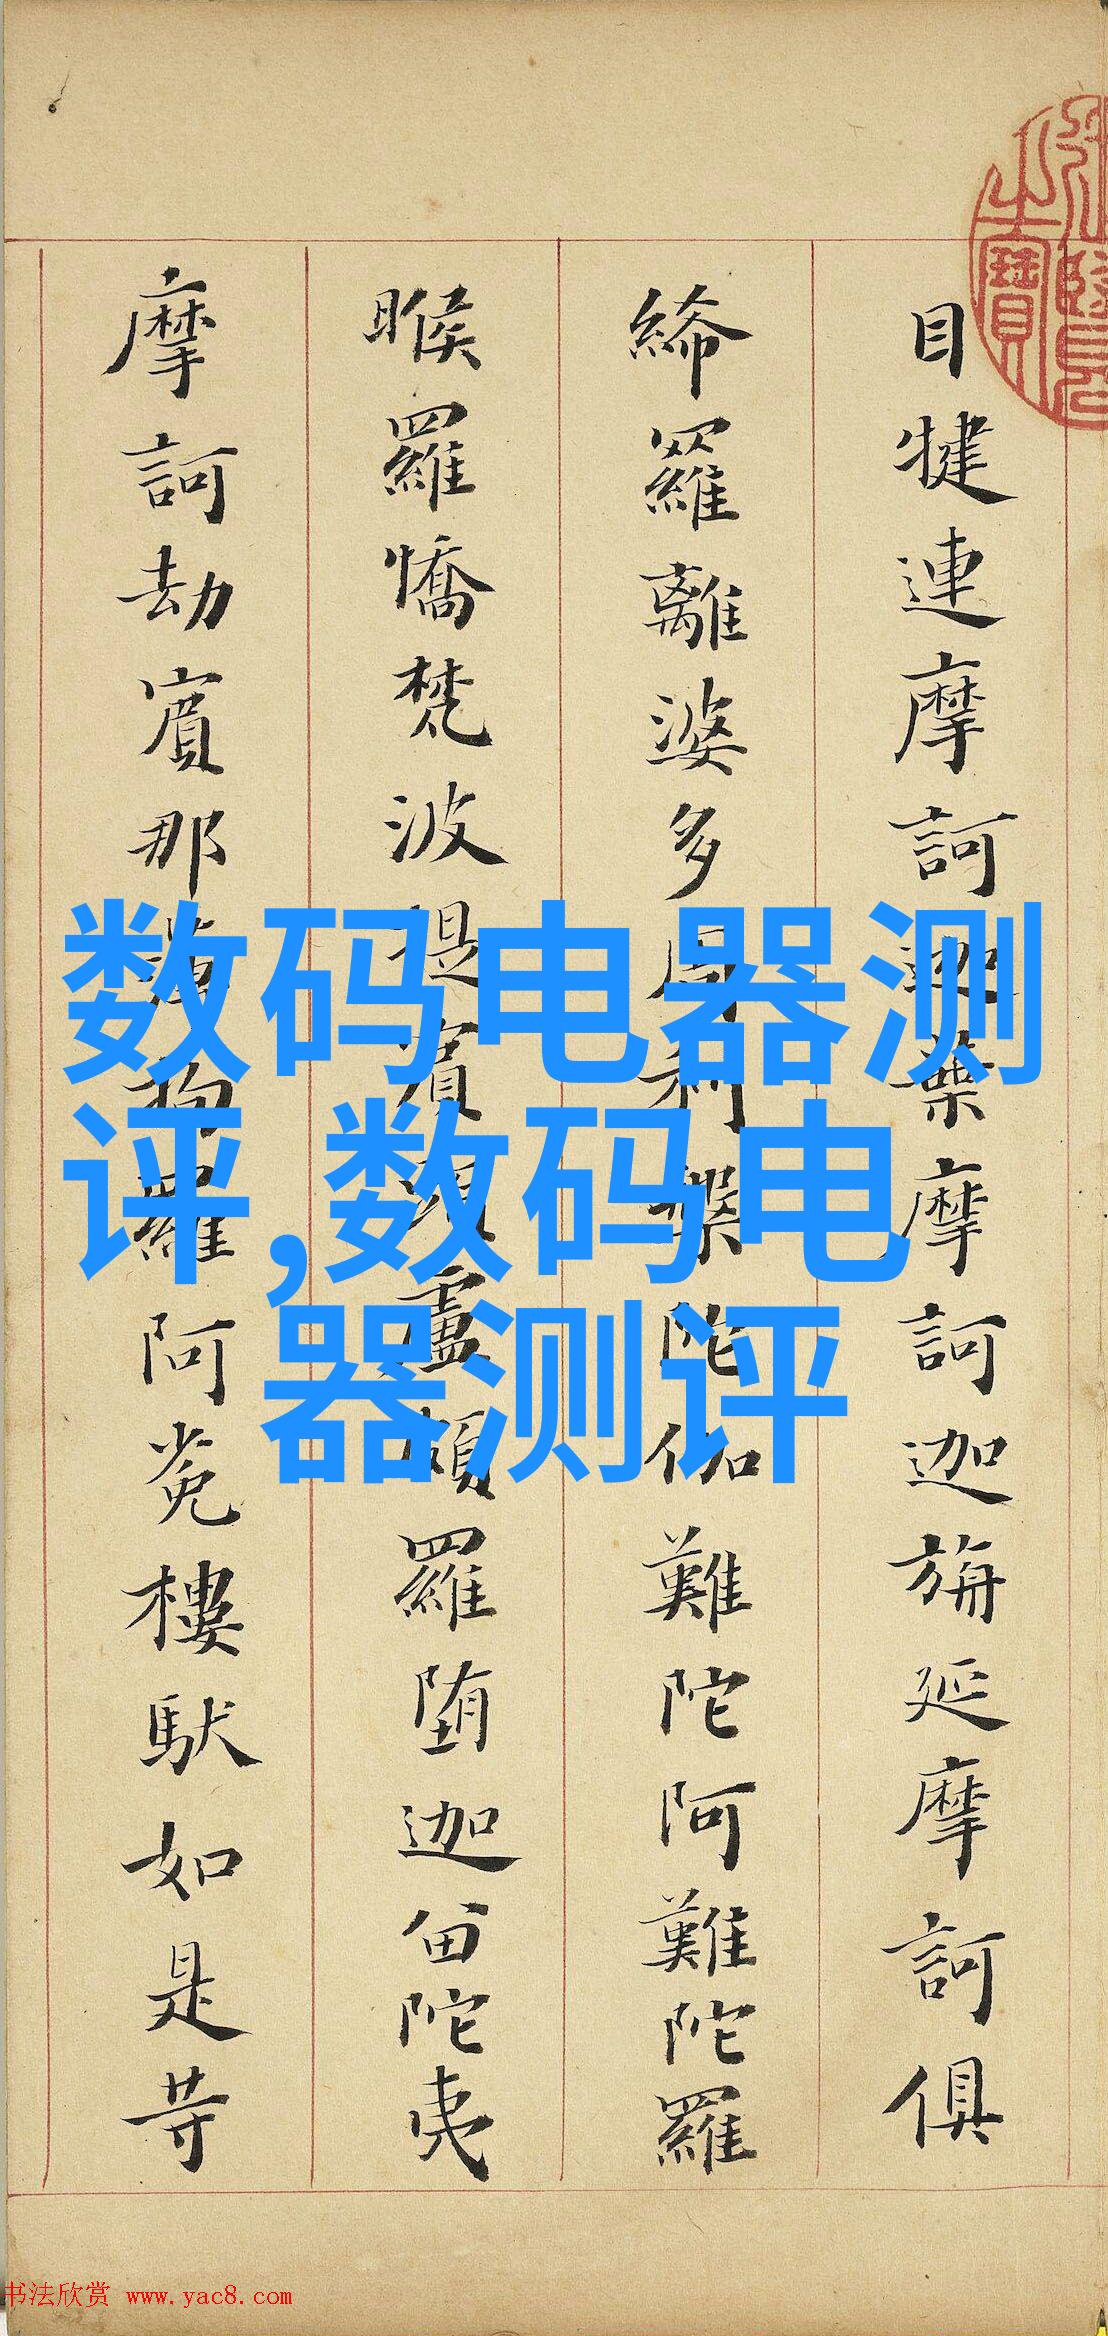 目犍連摩訶迦葉摩訶迦旃延摩訶俱
絺羅離婆多周利槃陀伽難陀阿難陀羅
睺羅憍梵波提賓頭盧頗羅堕迦留陀夷
摩訶劫賓那薄拘羅阿㝹樓馱如是等
之寶
数码电器测
评,数码电
器测评
书法欣赏 www.yac8.com